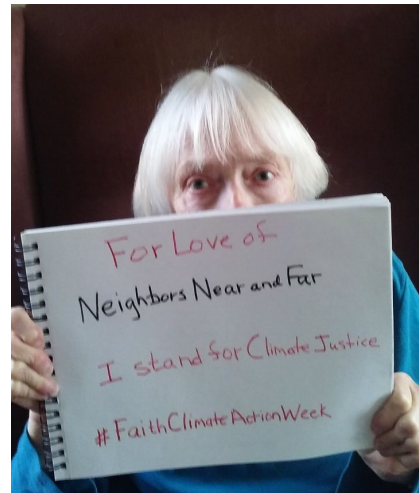 For Love of
Neighbors Near and Far
I stand for Climate Justice
#FaithClimateActionWeek